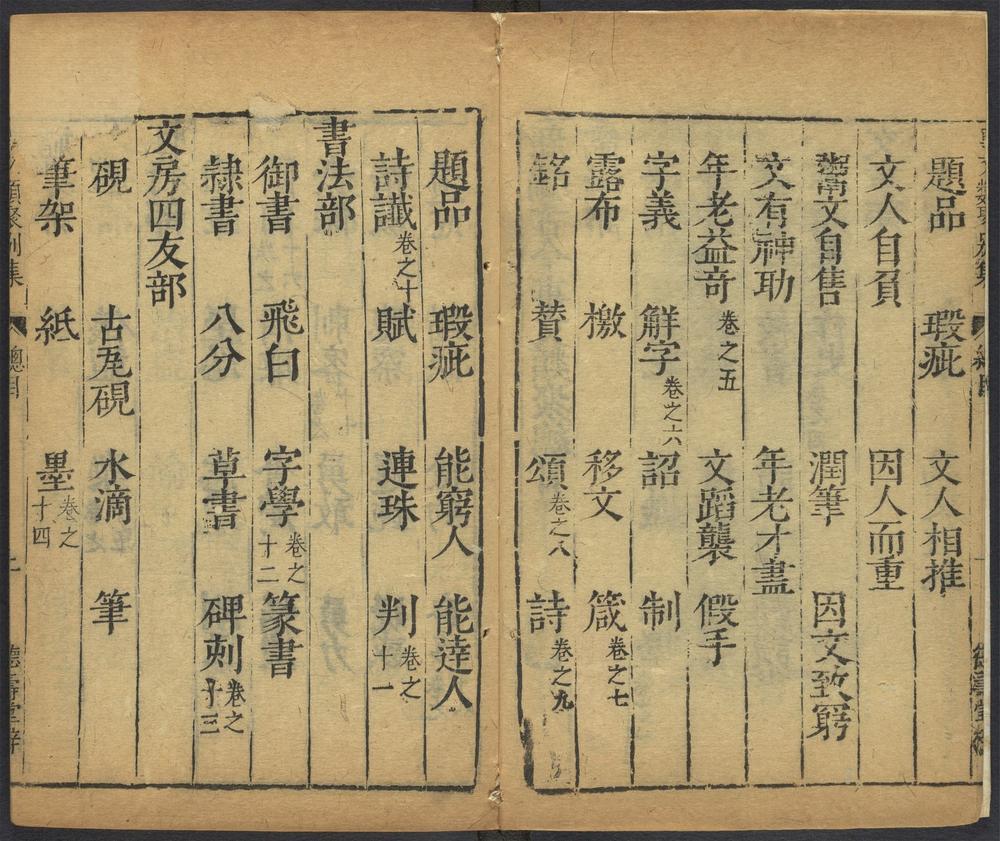 題品 瑕疵 文人相推
文人自負 因人而重
鬻文自售 潤筆 因文致窮
文有神助 年老才盡
年老益奇 卷之五 文蹈襲 假手
字義 觧字 卷之六 詔 制
露布 檄 移文 箴 卷之七
銘 贊 頌 卷之八 詩 卷之九
題品 瑕疵 能窮人 能達人
詩讖 卷之十 賦 連珠 判 卷之十一
書法部
御書 飛白 字學 卷之十二 篆書
隸書 八分 草書 碑刻 卷之十三
文房四友部
硯 古瓦硯 水滴 筆
筆架 紙 墨 卷之十四
類聚別集 總目 德壽堂梓